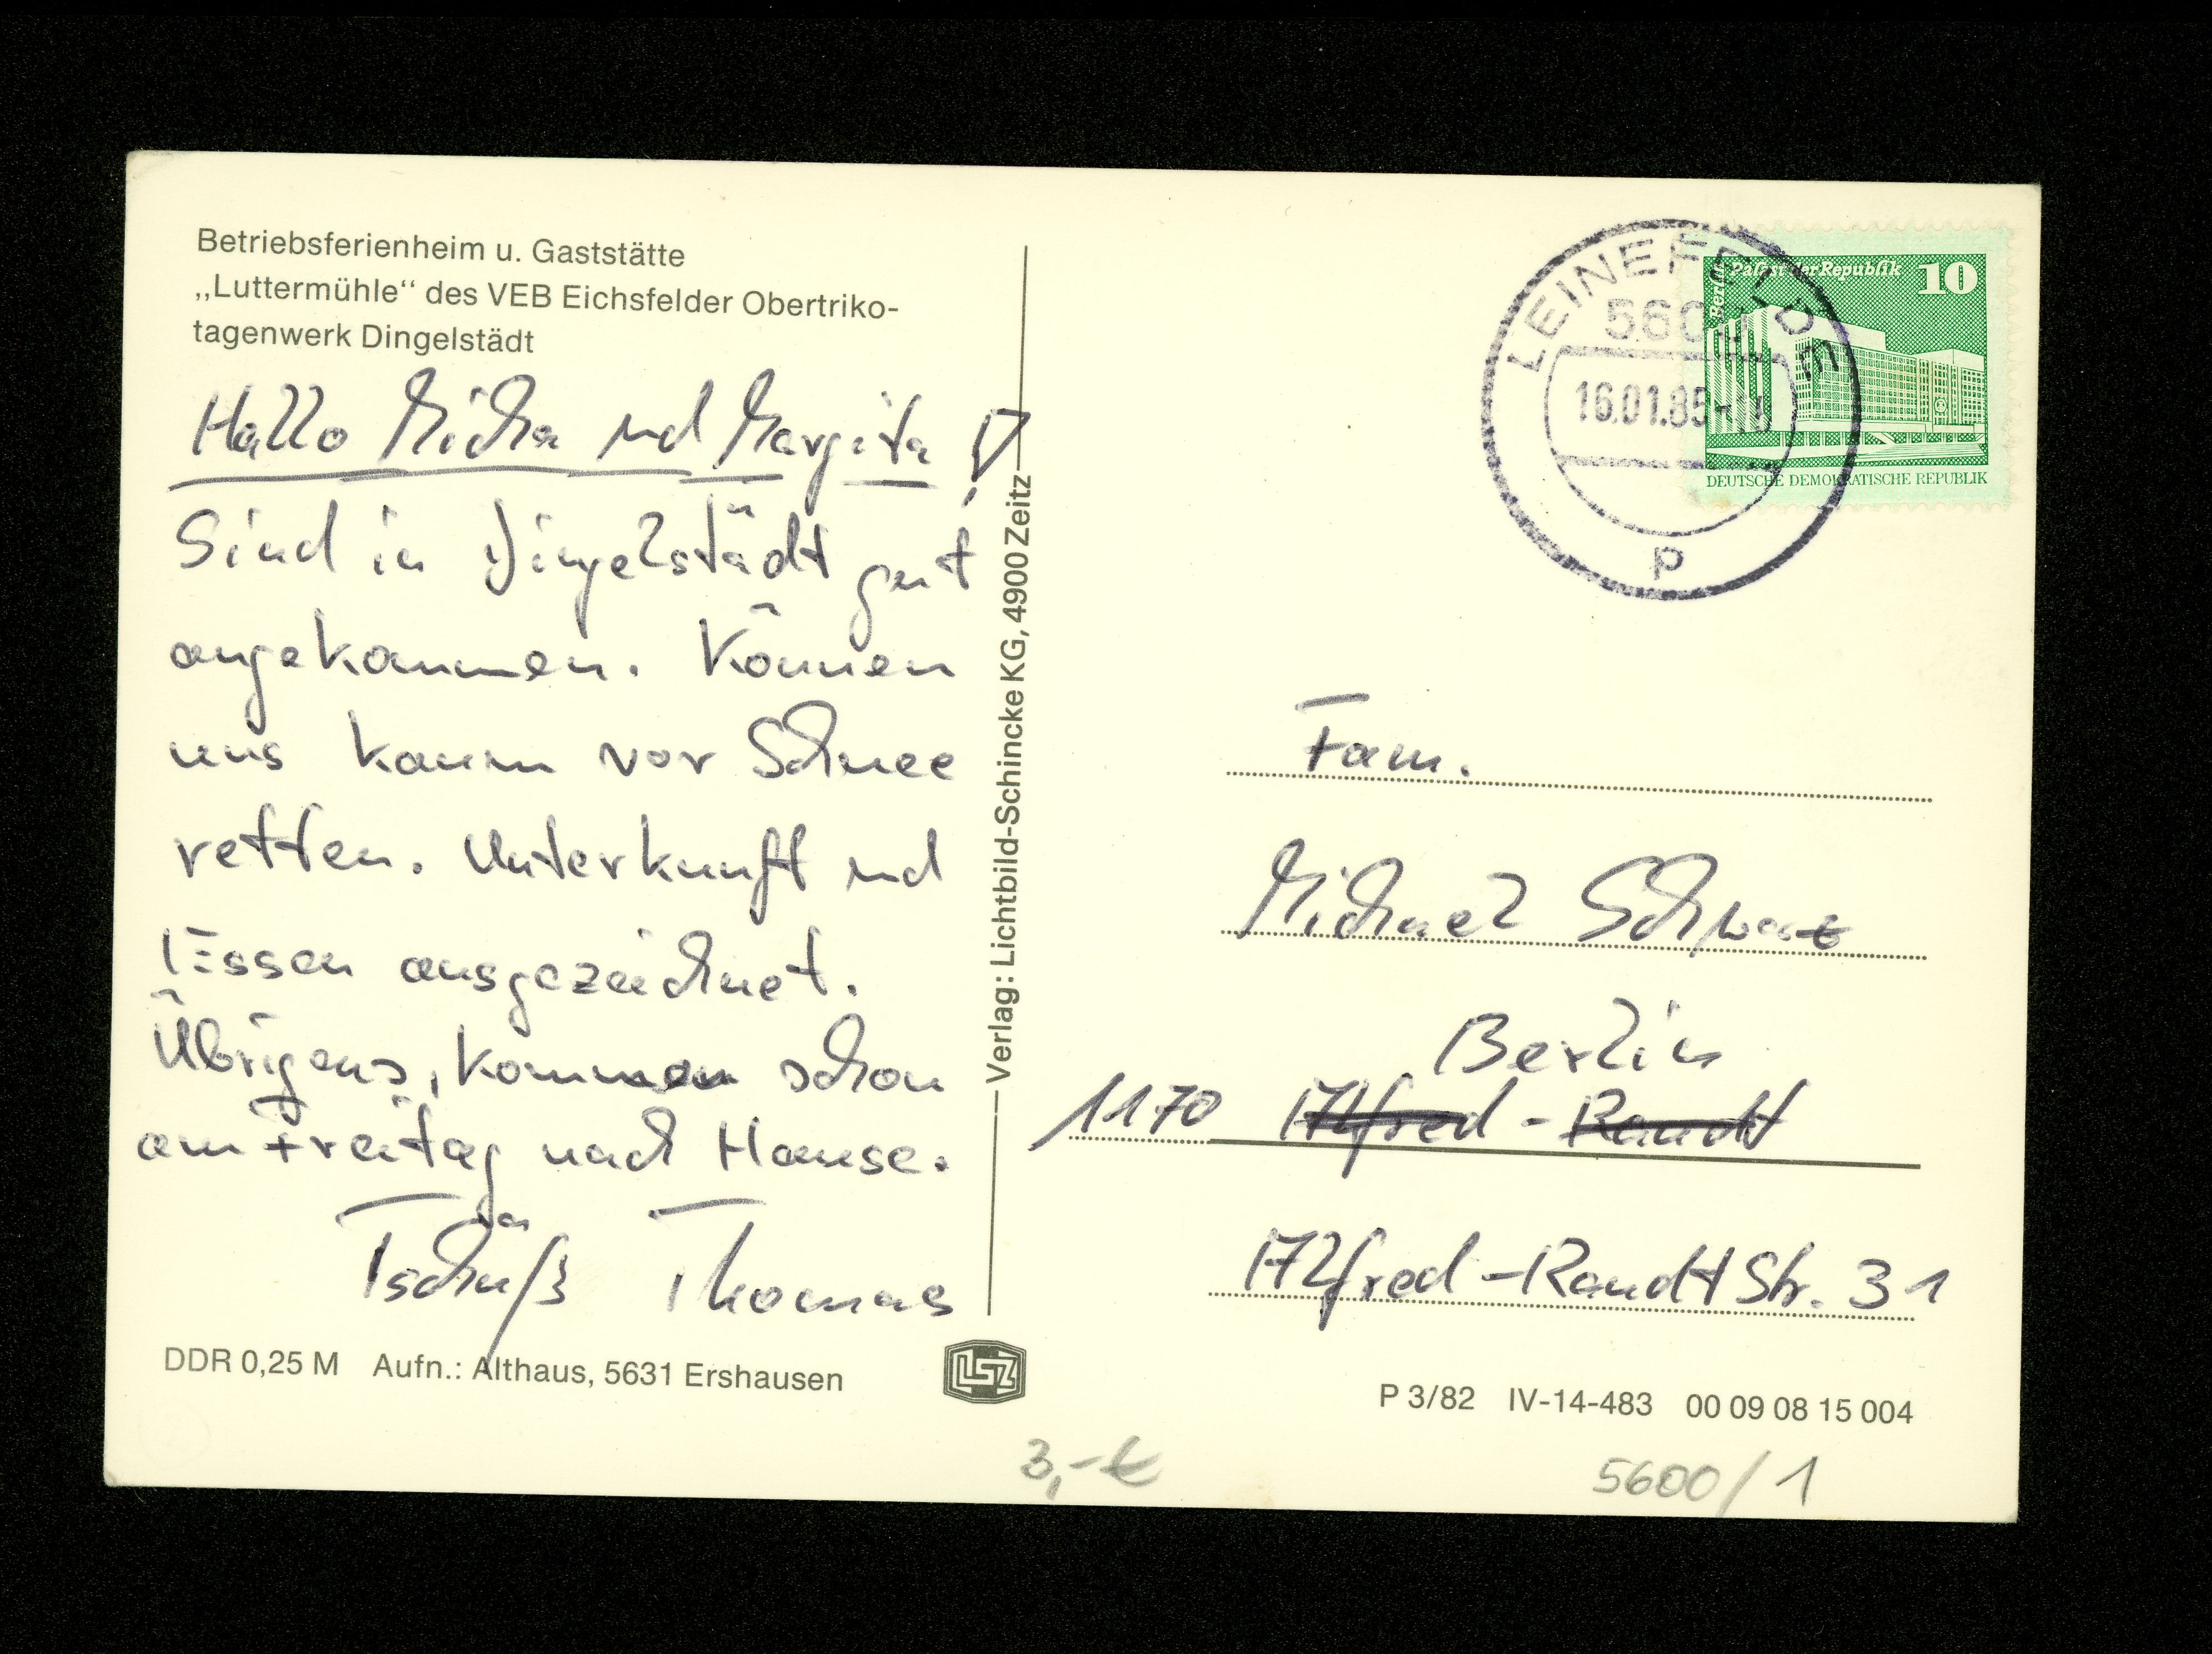 Betriebsferienheim u. Gaststätte
„Luttermühle“ des VEB Eichsfelder Obertriko-
tagenwerk Dingelstädt
Hallo Micha und Margita!
Sind in Dingelstädt gut
angekommen. Können
uns kaum vor Schnee
retten. Unterkunft und
Essen ausgezeichnet.
Übrigens, kommen schon
am Freitag nach Hause.
Tschüß Thomas
DDR 0,25 M Aufn.: Althaus, 5631 Ershausen
Verlag: Lichtbild-Schincke KG, 4900 Zeitz
LSZ
LEINEFELDE
560
16.01.85
p
Berlin Palast der Republik 10
DEUTSCHE DEMOKRATISCHE REPUBLIK
Fam.
Michael Schwarz
Berlin
1170 Alfred-Randt
Alfred-Randt Str. 31
P 3/82 IV-14-483 00 09 08 15 004
3,-€
5600/1